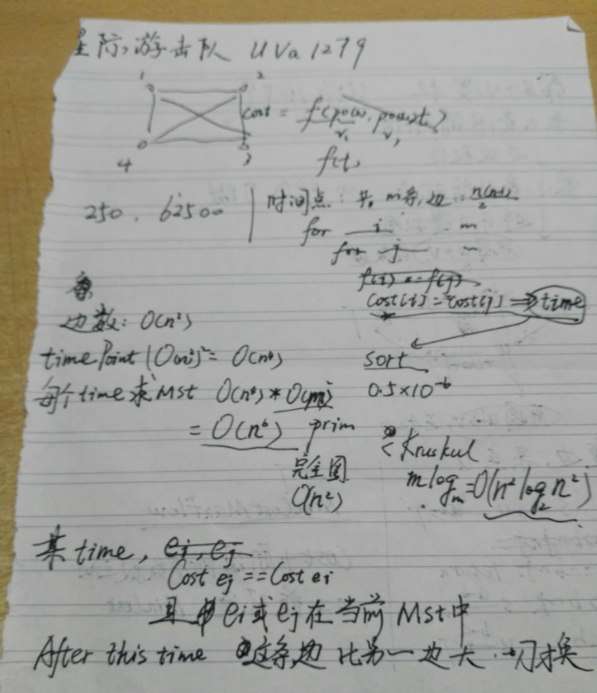 星际游击队 UVa 1279
1 2
cost = f(
4 3
f(t)
250 . 62500
时间点: 共 m条边 n(n-1)/2
for i m
for j
f(i) = f(j)
cost(i) = cost(j) ⇒ time
边数: O(n²)
time Point (O(n²))² = O(n⁴)
sort
每个time求Mst O(n⁴) * O(m)
0.5×10⁻⁶
= O(n⁶) prim
完全图
O(n²)
< Kruskul
m log m = O(n² log₂ n²)
某 time, ei, ej
Cost ej == Cost ei
且 ei或ej在当前 Mst中
After this time 这条边 比另一边大 . 切换